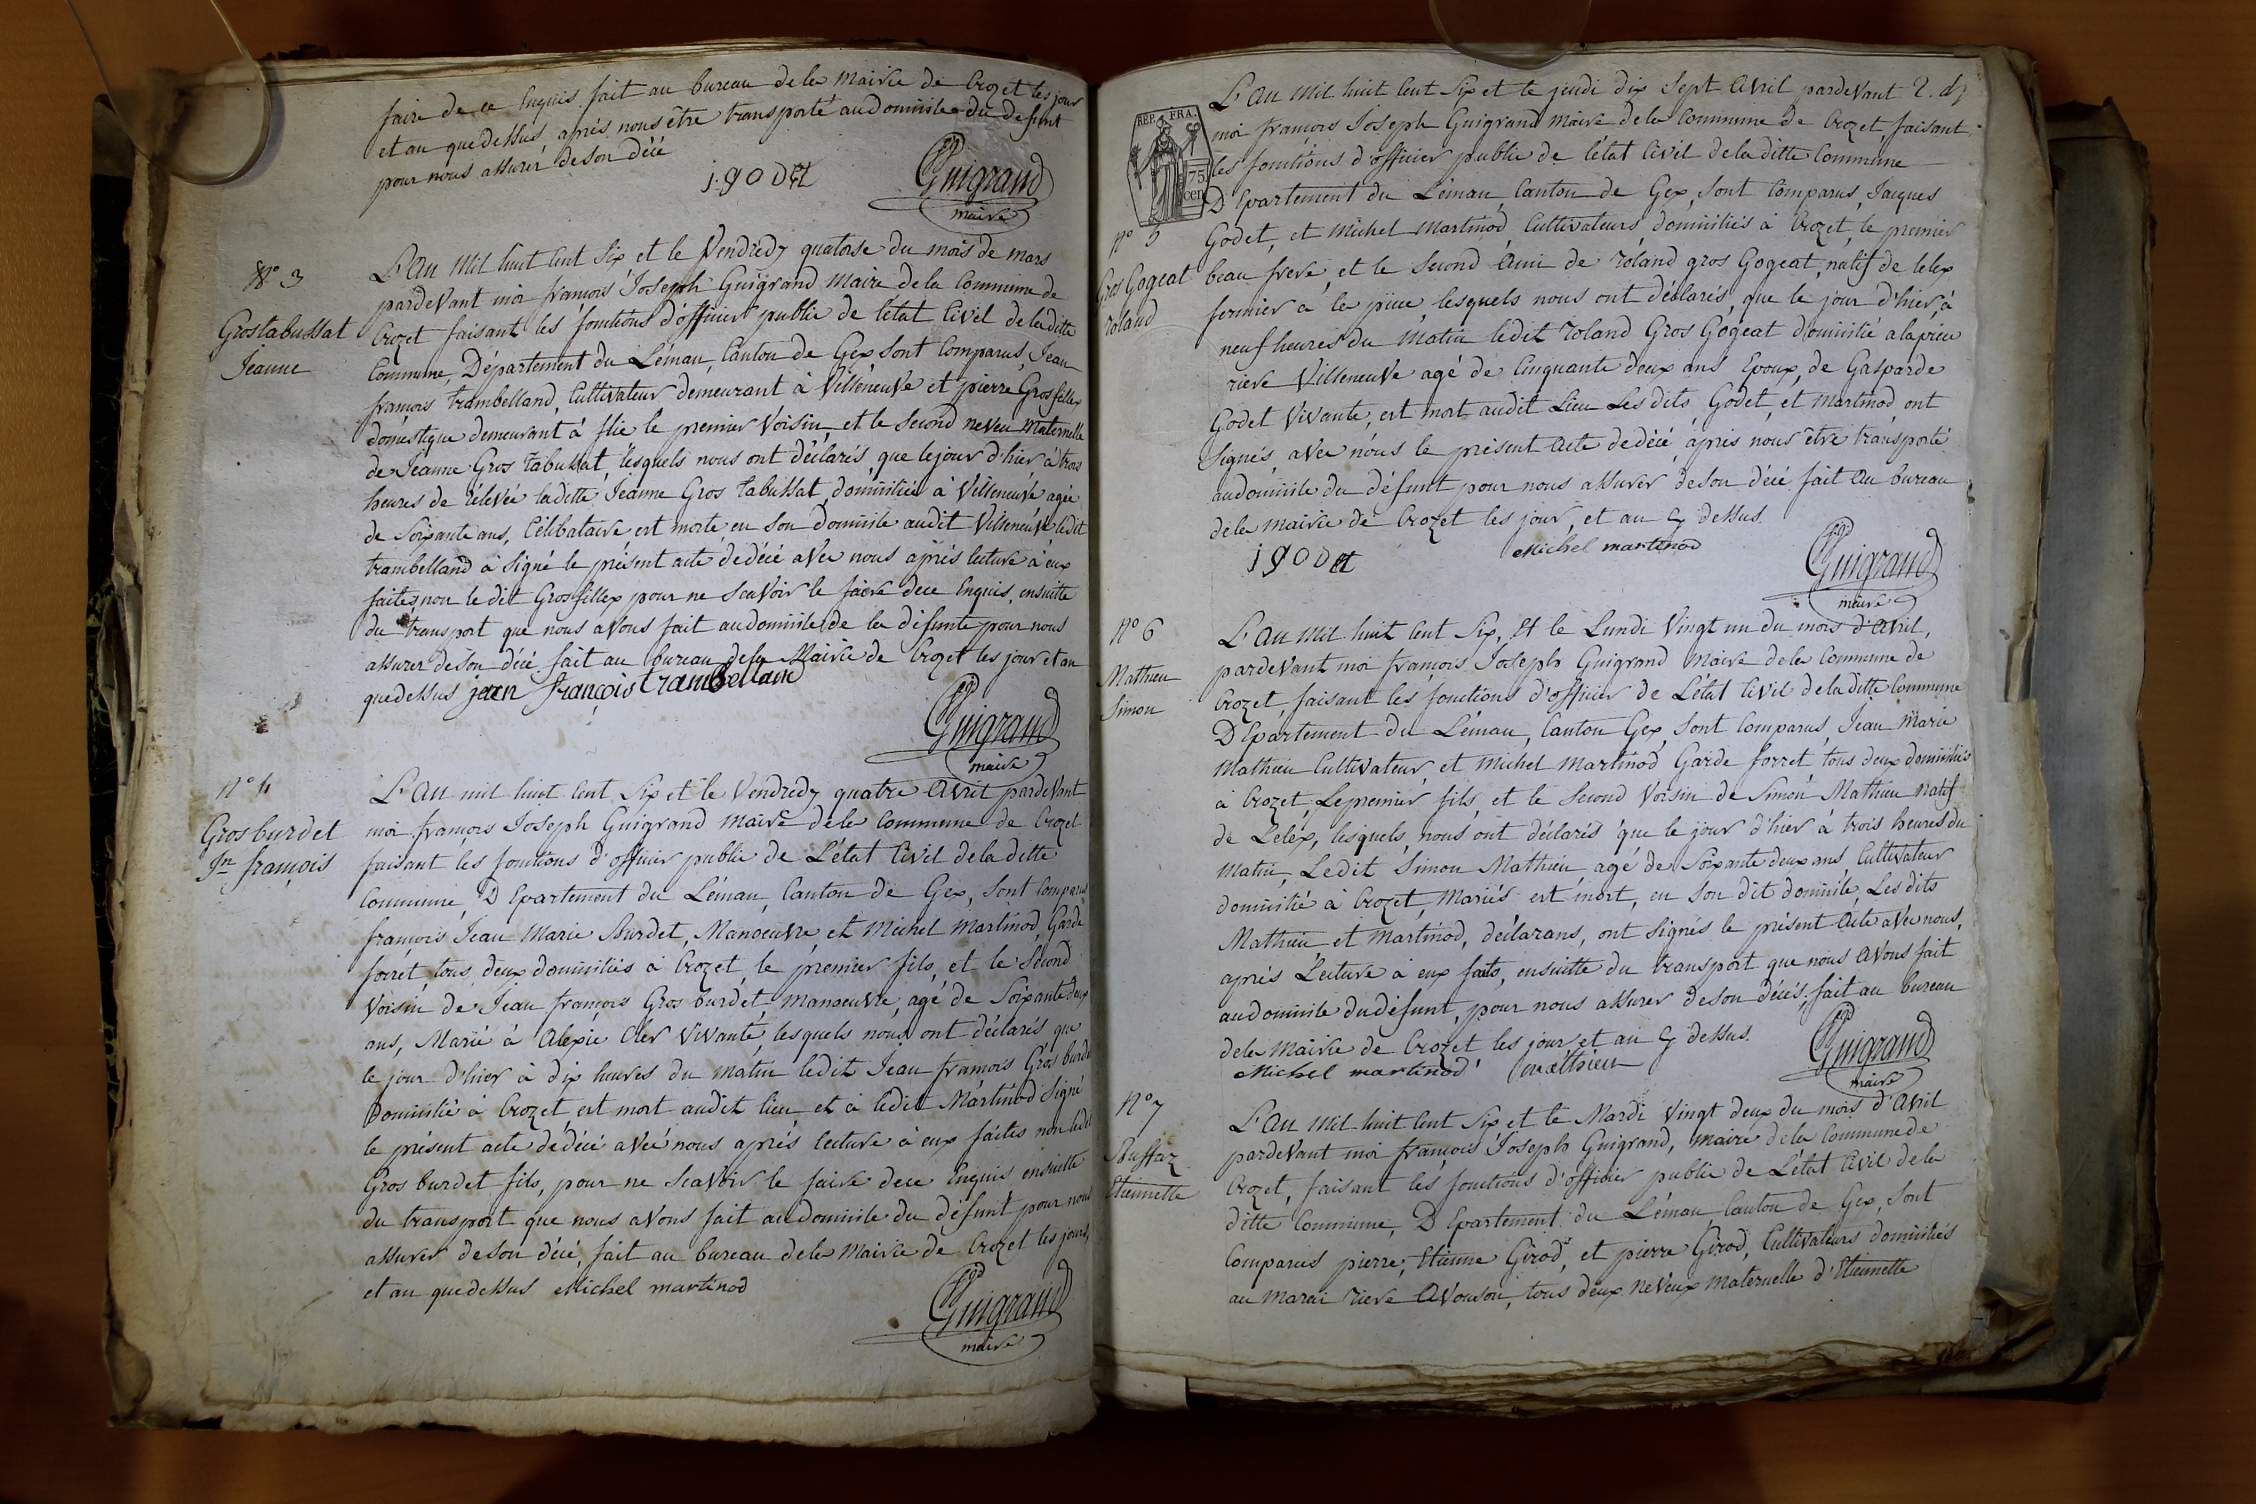 faire de ce Enquis. fait au bureau dela mairie de Crozet les jour
et an quedessus, aprés nous être transporté audomicile du defunt
pour nous assurer deson décé
j. godet
Guigrand
maire
N° 3
Grostabussat
Jeanne
L'An mil huit Cent Six et le Vendredy quatorse du mois de mars
pardevant moi françois Joseph Guigrand maire dela Commune de
Crozet faisant les fonctions d'officier public de l'état Civil de ladite
Commune, Département du Léman, Canton de Gex sont Comparus, Jean
françois trambelland, Cultivateur demeurant à Villeneuve et pierre Grosfillex
doméstique demeurant à flie le premier Voisin et le second neveu maternelle
de Jeanne Gros tabussat, lesquels nous ont déclarés, que lejour d'hier à trois
heures de rélevée laditte Jeanne Gros tabussat, domiciliée à Villeneuve agée
de Soixante ans, Célibataire est morte en Son domicile audit Villeneuve ledit
trambelland à signé le présent acte dedécé avec nous aprés lecture à eux
faites, non le dit Grosfillex pour ne scavoir le faire dece Enquis, ensuitte
du transport que nous avons fait audomicile de la défunte pour nous
assurer deson décé fait au bureau dela Mairie de Crozet les jour et an
quedessus jean françois trambelland
Guigrand
maire
N° 4
Gros burdet
Jn françois
L'An mil huit Cent Six et le Vendredy quatre Avril pardevant
moi françois Joseph Guigrand maire dela Commune de Crozet
faisant les fonctions d'officier public de L'état Civil de la ditte
Commune, DEpartement du Léman, Canton de Gex, sont Comparus
françois Jean Marie Burdet, Manoeuvre, et Michel Martinod, Garde
forrét, tous deux domiciliés à Crozet, le premier fils, et le second
Voisin de Jean françois Gros burdet, manoeuvre, agé de Soixante deux
ans, Marié à Alexie Cler Vivante, lesquels nous ont déclarés que
le jour d'hier à dix heures du matin ledit Jean françois Gros burdet
domicilié à Crozet est mort audit lieu et à ledit Martinod Signé
le présent acte dédécé avec nous aprés lecture à eux faites non ledit
Gros burdet fils, pour ne scavoir le faire dece Enquis ensuitte
du transport que nous avons fait audomicile du défunt pour nous
assurer deson décé, fait au bureau dela Mairie de Crozet les jours,
et an quedessus Michel martinod
Guigrand
maire
REP. FRA.
75
cen
L'An mil huit Cent Six et le jeudi dix sept Avril pardevant
moi françois Joseph Guigrand Maire dela Commune de Crozet, faisant
les fonctions d'officier public de l'état Civil de ladite Commune
DEpartement du Léman, Canton de Gex, sont Comparus, Jacques
N° 5
Gros Gogeat
roland
Godet, et Michel Martinod, Cultivateurs domiciliés à Crozet, le premier
beau frere, et le second Ami de roland gros Gogeat, natif de lelex
fermier à la piece lesquels nous ont déclarés, que le jour d'hier, à
neuf heures du matin ledit roland Gros Gogeat domicilié alapiece
riere Villeneuve agé de Cinquante deux ans Epoux, de Gasparde
Godet Vivante, est mort audit Lieu Lesdits Godet, et Martinod ont
signés, avec nous le présent Acte dedécé, aprés nous être transporté
audomicile du défunt pour nous assurer deson décé fait au bureau
dela mairie de Crozet les jour, et an q dessus.
j godet
Michel martinod
Guigrand
maire
N° 6
Mathieu
Simon
L'An mil huit Cent Six, Et le Lundi Vingt un du mois d'Avril,
pardevant moi françois Joseph Guigrand Maire dela Commune de
Crozet, faisant les fonctions d'officier de L'état Civil de ladite Commune
DEpartement du Léman, Canton Gex, sont Comparus, Jean Marie
Mathieu Cultivateur, et Michel Martinod Garde forret tous deux domiciliés
à Crozet, Le premier fils et le second Voisin de Simon Mathieu natif
de Leléx, lesquels nous ont déclarés que le jour d'hier à trois heures du
matin, Ledit Simon Mathieu agé de Soixante deux ans Cultivateur
domicilié à Crozet, Mariés est mort, en son dit domicile, Les dits
Mathieu et Martinod, déclarans, ont signés le présent Acte avec nous,
aprés Lecture à eux faits, ensuitte du transport que nous avons fait
audomicile du défunt, pour nous assurer deson décés. fait au bureau
dela Mairie de Crozet les jour, et an q dessus.
Michel martinod
mathieu
Guigrand
maire
N° 7
Buffaz
Etiennette
L'An mil huit Cent Six et le Mardi Vingt deux du mois d'Avril
pardevant moi françois Joseph Guigrand, maire dela Commune de
Crozet, faisant les fonctions d'officier public de L'état Civil dela
ditte Commune, DEpartement du Léman Canton de Gex, sont
Comparus pierre, Etienne Girod, et pierre Girod, Cultivateurs domiciliés
au marai riere Avouson, tous deux neveux maternelle d'Etiennette